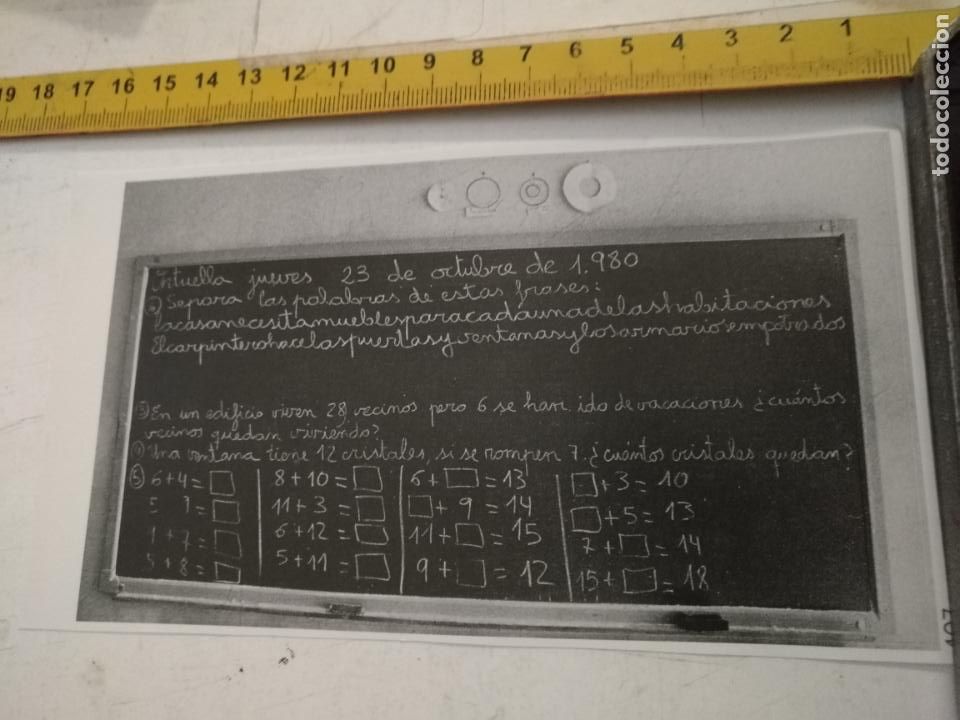 19 18 17 16 15 14 13 12 11 10 9 8 7 6 5 4 3 2 1
todocoleccion
Ortuella jueves 23 de octubre de 1.980
② Separa las palabras de estas frases:
Lacasanecesitamueblesparacadaunadelashabitaciones
Elcarpinterohacelaspuertasyventanasylosarmariosempotrados
③ En un edificio viven 28 vecinos pero 6 se han ido de vacaciones ¿cuántos
vecinos quedan viviendo?
④ Una ventana tiene 12 cristales, si se rompen 7 ¿cuántos cristales quedan?
⑤ 6+4=□ 8+10=□ 6+□=13 □+3=10
5 7=□ 11+3=□ □+9=14 □+5=13
1+7=□ 6+12=□ 11+□=15 7+□=14
5+8=□ 5+11=□ 9+□=12 15+□=18
107